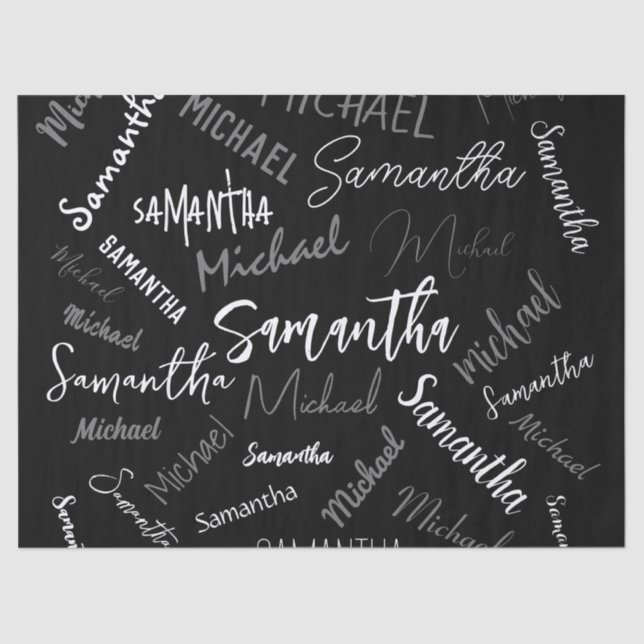 Michael
Samantha
MICHAEL
MICHAEL
Michael
Samantha
Samantha
SAMANTHA
Michael
Michael
SAMANTHA
Michael
Michael
Samantha
Michael
Samantha
Michael
Samantha
Samantha
Michael
Michael
Michael
Samantha
Michael
Samantha
Samantha
Michael
Michael
Saman
Samantha
SAMANTHA